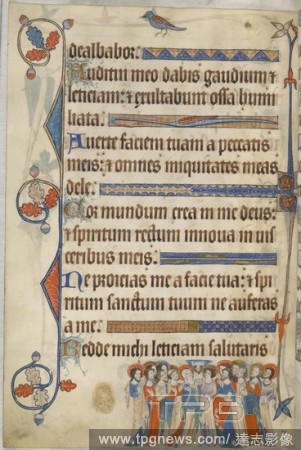 dealbabor.
Auditui meo dabis gaudium ⁊
leticiam: ⁊ exultabunt ossa humi
liata.
Auerte faciem tuam a peccatis
meis: ⁊ omnes iniquitates meas
dele.
Cor mundum crea in me deus:
⁊ spiritum rectum innoua in uis
ceribus meis.
Ne proicias me a facie tua: ⁊ spi
ritum sanctum tuum ne auferas
a me.
Redde michi leticiam salutaris
TPG
www.tpgnews.com / 達志影像